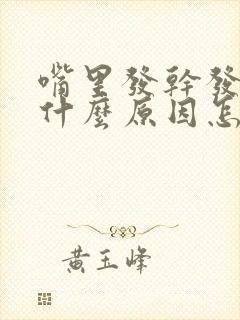 嘴里發幹發
什麼原因怎
黃玉峰